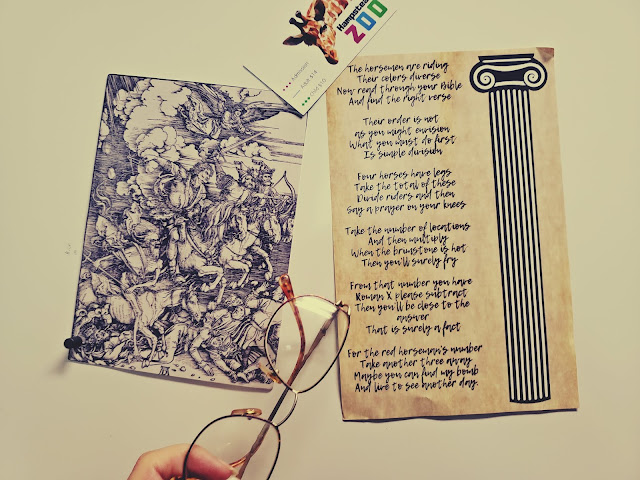 Hampstea
ZOO
Admission
The horsemen are riding
Their colors diverse
Now read through your Bible
And find the right verse
Their order is not
as you might envision
What you must do first
Is simple division
Four horses have legs
Take the total of these
Divide riders and then
Say a prayer on your knees
Take the number of locations
And then multiply
When the brimstone is hot
Then you'll surely fry
From that number you have
Roman X please subtract
Then you'll be close to the
answer
That is surely a fact
For the red horseman's number
Take another three away
Maybe you can find my bomb
And live to see another day.